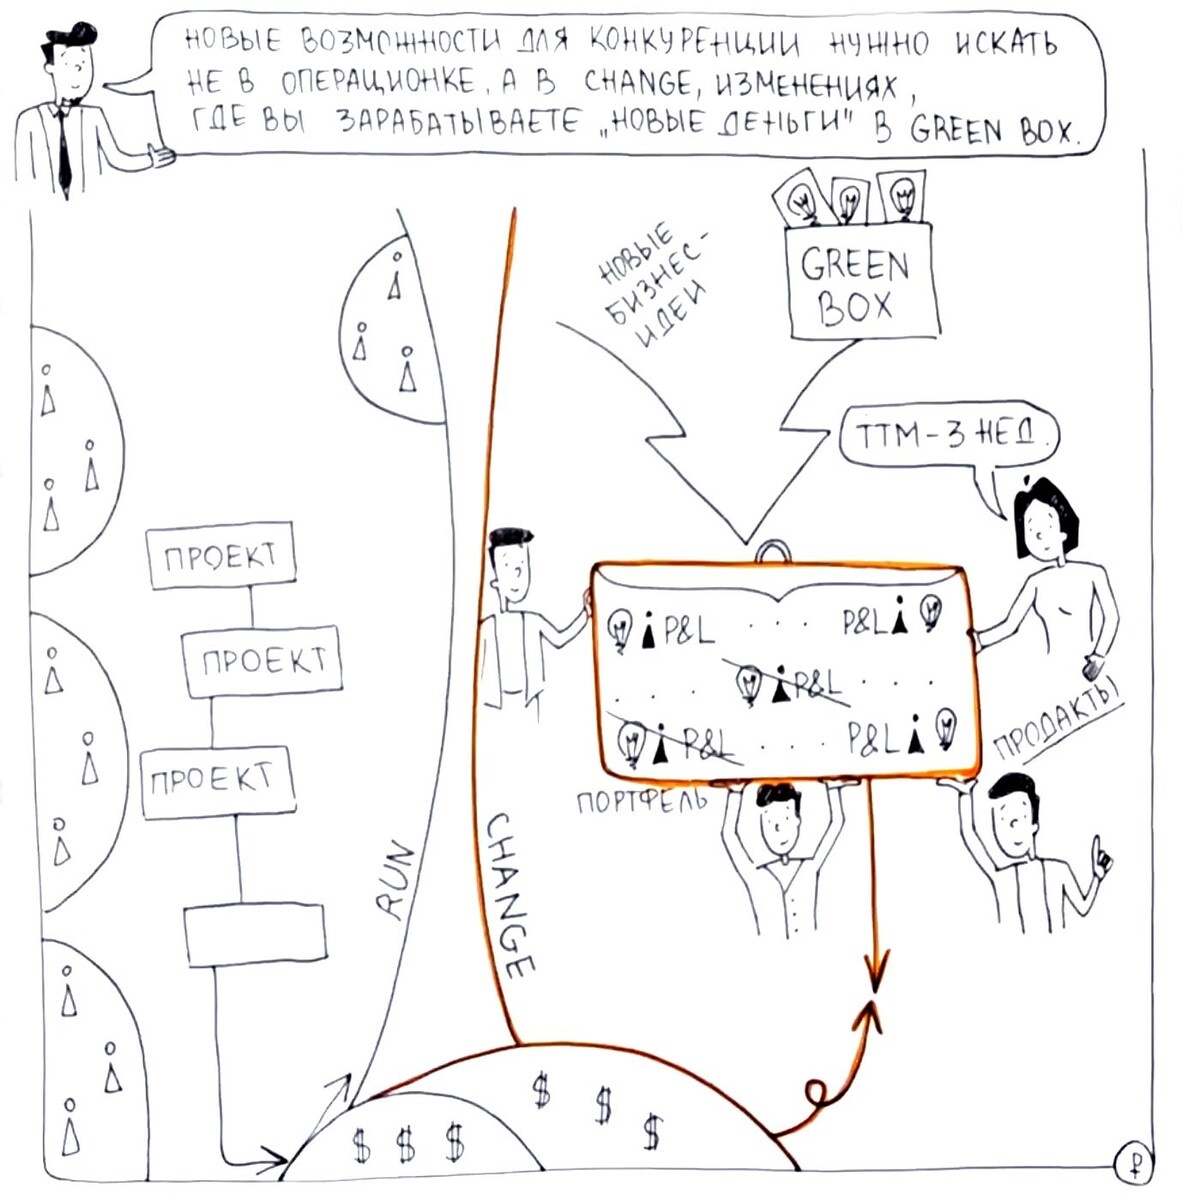 НОВЫЕ ВОЗМОЖНОСТИ ДЛЯ КОНКУРЕНЦИИ НУЖНО ИСКАТЬ
НЕ В ОПЕРАЦИОНКЕ, А В CHANGE, ИЗМЕНЕНИЯХ,
ГДЕ ВЫ ЗАРАБАТЫВАЕТЕ „НОВЫЕ ДЕНЬГИ" В GREEN BOX.
НОВЫЕ
БИЗНЕС-
ИДЕИ
GREEN
BOX
ТТМ-3 НЕД.
ПРОЕКТ
ПРОЕКТ
ПРОЕКТ
P&L . . . P&L
. . . P&L . . .
P&L . . . P&L
ПРОДАКТЫ
ПОРТФЕЛЬ
RUN
CHANGE
$ $ $
$ $ $
₽